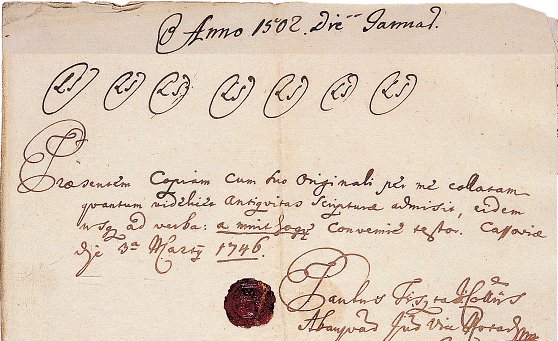 Anno 1502. Die Januar.
LS LS LS LS LS LS LS
Præsentem Copiam cum suo Originali per me collatam
quantum videlicet Antiquitas Scripturæ admisit, eidem
ad verba: Convenire testor. Cassoviæ
die 3a Martij 1746.
Paulus
Vice